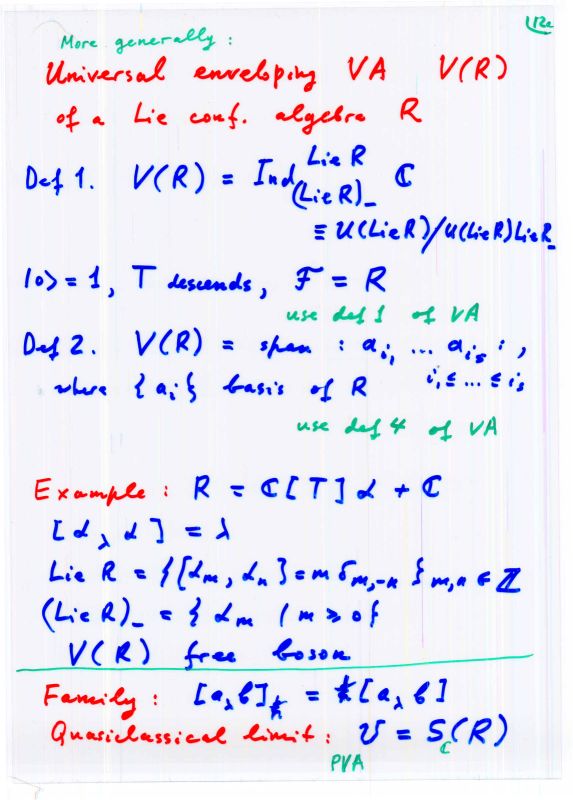 12a
More generally:
Universal enveloping VA V(R)
of a Lie conf. algebra R
Def 1. V(R) = Ind_{(Lie R)_-}^{Lie R} ℂ
≡ U(Lie R)/U(Lie R)Lie R_-
|0> = 1, T descends, F = R
use def 1 of VA
Def 2. V(R) = span : a_{i_1} ... a_{i_s} : ,
where {a_i} basis of R i_1 ≤ ... ≤ i_s
use def 4 of VA
Example: R = ℂ[T]α + ℂ
[α_λ α] = λ
Lie R = {[α_m, α_n] = m δ_{m,-n}}_{m,n ∈ ℤ}
(Lie R)_- = {α_m | m ≥ 0}
V(R) free boson
Family: [a_λ b]_ℏ = ℏ[a_λ b]
Quasiclassical limit: V = S_ℂ(R)
PVA